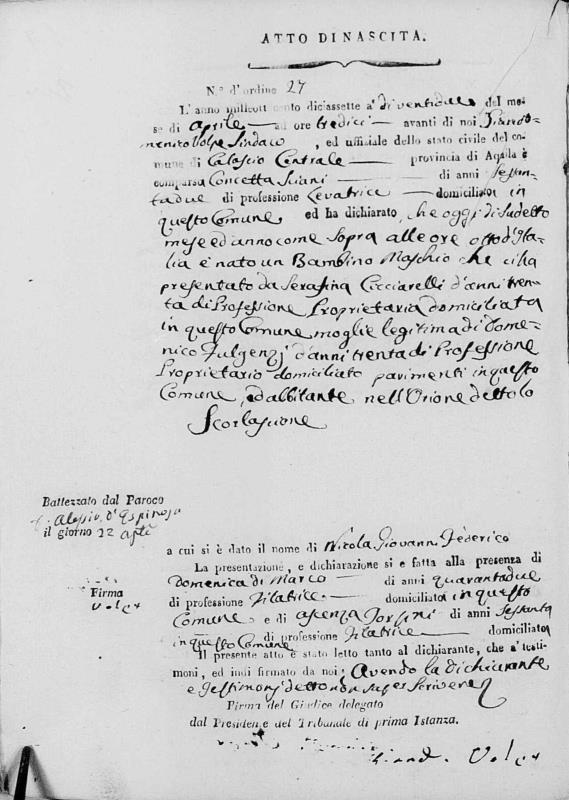 ATTO DI NASCITA.
N.° d'ordine 27
L'anno millcott cento diciassette a' di ventidue del me-
se di Aprile ad ore tredici avanti di noi Giando-
menico Volpe Sindaco, ed uffiziale dello stato civile del co-
mune di Calascio Centrale provincia di Aquila è
comparsa Concetta Sciani di anni Sessan-
tadue di professione Levatrice domiciliata in
questo Comune ed ha dichiarato, che oggi di Sudetto
mese ed anno come sopra alle ore otto d'Ita-
lia è nato un Bambino Maschio che ci ha
presentato da Serafina Cicciarelli d'anni tren-
ta di Professione Proprietaria domiciliata
in questo Comune, moglie legitima di Dome-
nico Fulgenzj d'anni trenta di Professione
Proprietario domiciliato parimenti in questo
Comune, ed abbitante nell'Orione detto lo
Scorlascione
Battezzato dal Paroco
Alessio d'Espinosa
il giorno 22 aple
a cui si è dato il nome di Nicola Giovanni Federico
La presentazione, e dichiarazione si e fatta alla presenza di
Domenica di Marco di anni quarantadue
di professione Filatrice domiciliata in questo
Comune e di Ascenza Torsini di anni Sessanta
in questo Comune di professione Filatrice domiciliata
Firma
Volpe
Il presente atto è stato letto tanto al dichiarante, che a' testi-
moni, ed indi firmato da noi, Avendo la Dichiarante
e Testimonj detto non saper Scrivere
Firma del Giudice delegato
dal Presidente del Tribunale di prima Istanza.
Giand. Volpe